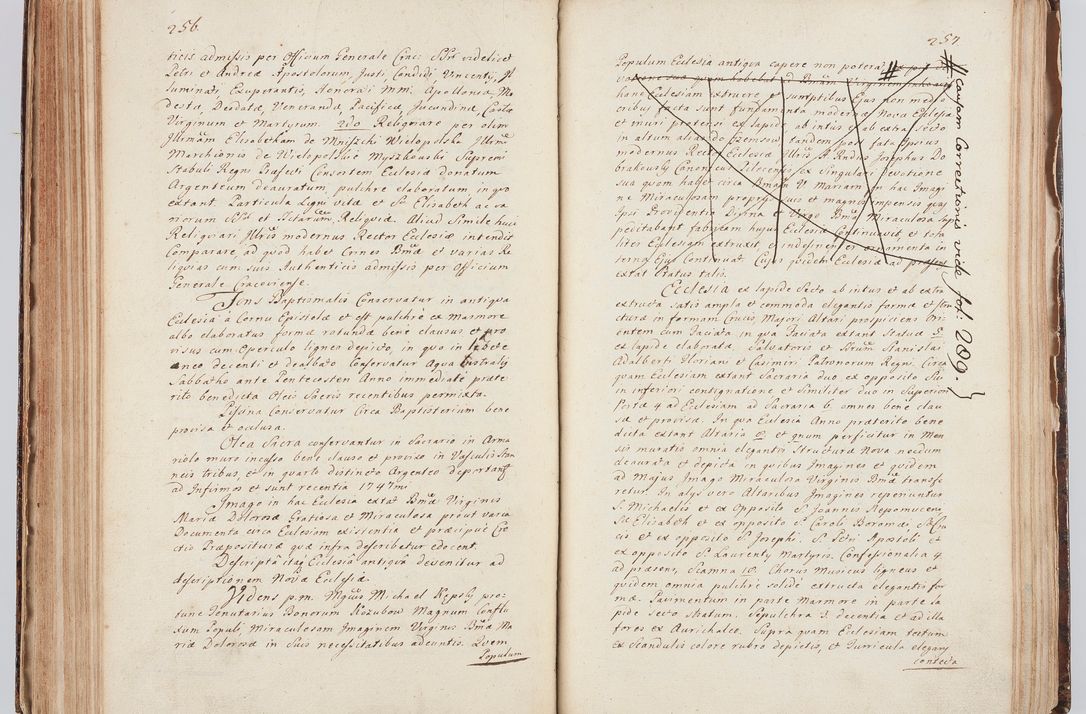 256.
ticis admissis per Officium Generale Crac: SSrũ videlicet
Petri et Andreæ Apostolorum, Justi, Candidi, Vincentij, Il
luminati, Exuperantis, Honorati MM. Apolloniæ, Mo
destæ, Deodatæ, Venerandæ, Pacificæ, Jucundinæ,
Virginum et Martyrum. 2do Reliquiare per olim
Illrmam Elisabetham de Mniszchi Wielopolska Illrmi
Marchionis de Wielopolskie Myszkowski Supremi
Stabuli Regni Præfecti Consortem Ecclesiæ donatum
Argenteum deauratum, pulchre elaboratum, in quo
extant Particula Ligni vitæ et Sæ Elisabeth ac va
riorum SSrũ et SSctarum Reliquiæ. Aliud Simile huic
Reliquiari Illris modernus Rector Ecclesiæ intendit
Comparare, ad quod habet Crines Bmæ et varias Re
liquias cum suis Authenticis admissis per Officium
Generale Cracoviense.
Fons Baptismalis Conservatur in antiqua
Ecclesia a Cornu Epistolæ et est pulchre ex Marmore
albo elaboratus formæ rotundæ bene clausus et pro
visus cum Operculo ligneo depicto, in quo in
decenti et dealbato Conservatur Aqua lustralis
Sabbatho ante Pentecosten Anno immediate præte
rito benedicta Oleis Sacris recentibus permixta.
Piscina Conservatur Circa Baptisterium bene
provisa et oclusa.
Olea Sacra conservantur in Sacrario in Arma
riolo muro incusso bene clauso et proviso in Vasculis Stan
neis tribus, et in quarto distincto Argenteo deportantur
ad Infirmos et sunt recentia 1747mi
Imago in hac Ecclesia extat Bmæ Virginis
Mariæ Dolorosæ Gratiosa et Miraculosa prout varia
Documenta circa Ecclesiam existentia et præcipue Ere
ctio Præposituræ quæ infra describetur edocent.
Descripta itaq Ecclesia antiqua devenitur ad
descriptionem Novæ Ecclesiæ.
Videns p.m. Mgcus Michael Kepski pro
tunc Tenutarius Bonorum Kozubow Magnum Conflu
xum Populi, Miraculosam Imaginem Virginis Bmæ Ma
riæ Dolorosæ in suis necessitatibus adeuntis. Quem
Populum
257.
Populum Ecclesia antiqua capere non poterat
hanc Ecclesiam extruere et sumptibus Ejus non medio
cribus, facta sunt fundamenta moderna Novæ Ecclesiæ
et muri protensi ex lapide ab intus et ab extra Secto
in altum tandem post fata Ipsius
modernus Rector Ecclesiæ Illris A. Rndus Josephus Do
brakowski Canonicus Pilecensis ex Singulari devotione
sua quam habet circa Bmam V. Mariam in hac Imagi
ne Miraculosam proprijs suis et magnis impensis quas
Ipsi Providentia Divina et Virgo Bma Miraculosa Sup
peditabant fabricam hujus Ecclesiæ Continuavit, et tota
liter Ecclesiam extruxit, et indesinenter ornamento in
terno Ejus Continuat. Cujus quidem Ecclesiæ ad præsens
extat Status talis.
Ecclesia ex lapide Secto ab intus et ab extra
extructa satis ampla et commoda elegantis formæ et stru
cturæ in formam Crucis, Majori Altari prospiciens Ori
entem cum Faciata in qua Faciata extant Statuæ 5.
ex lapide elaboratæ, Salvatoris et SSrum Stanislai
Adalberti Floriani et Casimiri Patronorum Regni, Cir
quam Ecclesiam extant Sacraria duo ex opposito Sibi
in inferiori contignatione et similiter duo in Superiori
Porta 4 ad Ecclesiam ad Sacraria 6. omnes bene clau
sæ et provisæ. In qua Ecclesia Anno præterito bene
dicta extant Altaria et perficitur in Men
sis muratis omnia elegantis Structuræ Nova necdum
deaurata et depicta in quibus Imagines et quidem
ad Majus Imago Miraculosa Virginis Bmæ transfe
retur. In alijs vero Altaribus Imagines reponuntur
S. Michaelis et ex Opposito S. Joannis Nepomuceni,
Sæ Elisabeth et ex opposito S. Caroli Boromæi,
et ex opposito S. Josephi. S. Petri Apostoli et
ex opposito S. Laurentij Martyris. Confessionalia 4.
ad præsens, Scamna 10. Chorus Musicus ligneus et
quidem omnia pulchre solide extructa elegantis for
mæ. Pavimentum in parte Marmore in parte la
pide Secto stratum. Sepulchra 3. decentia et ad illa
fores ex Aurichalco. Supra quam Ecclesiam tectum
ex Scandulis colore rubro depictis, et Turricula elegans
contecta
# causam Correctionis vide fol. 209.